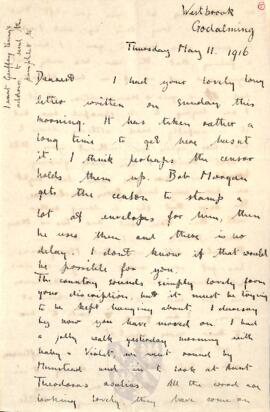 Westbrook
Godalming
Thursday May 11. 1916
I want Geoffrey Young's
address to send the
pamphlet to
Dearest I had your lovely long
letter written on Sunday this
morning. It has taken rather a
long time to get here hasnt
it. I think perhaps the censor
holds them up. Bob Morgan
gets the censor to stamp a
lot of envelopes for him, then
he uses them and there is no
delay. I don't know if that would
be possible for you.
The country sounds simply lovely from
your discription but it must be trying
to be kept hanging about. I daresay
by now you have moved on. I had
a jolly walk yesterday morning with
baby & Violet, we went round by
Munstead and in to look at Aunt
Theodoras azaleas. All the wood are
looking lovely they have some on